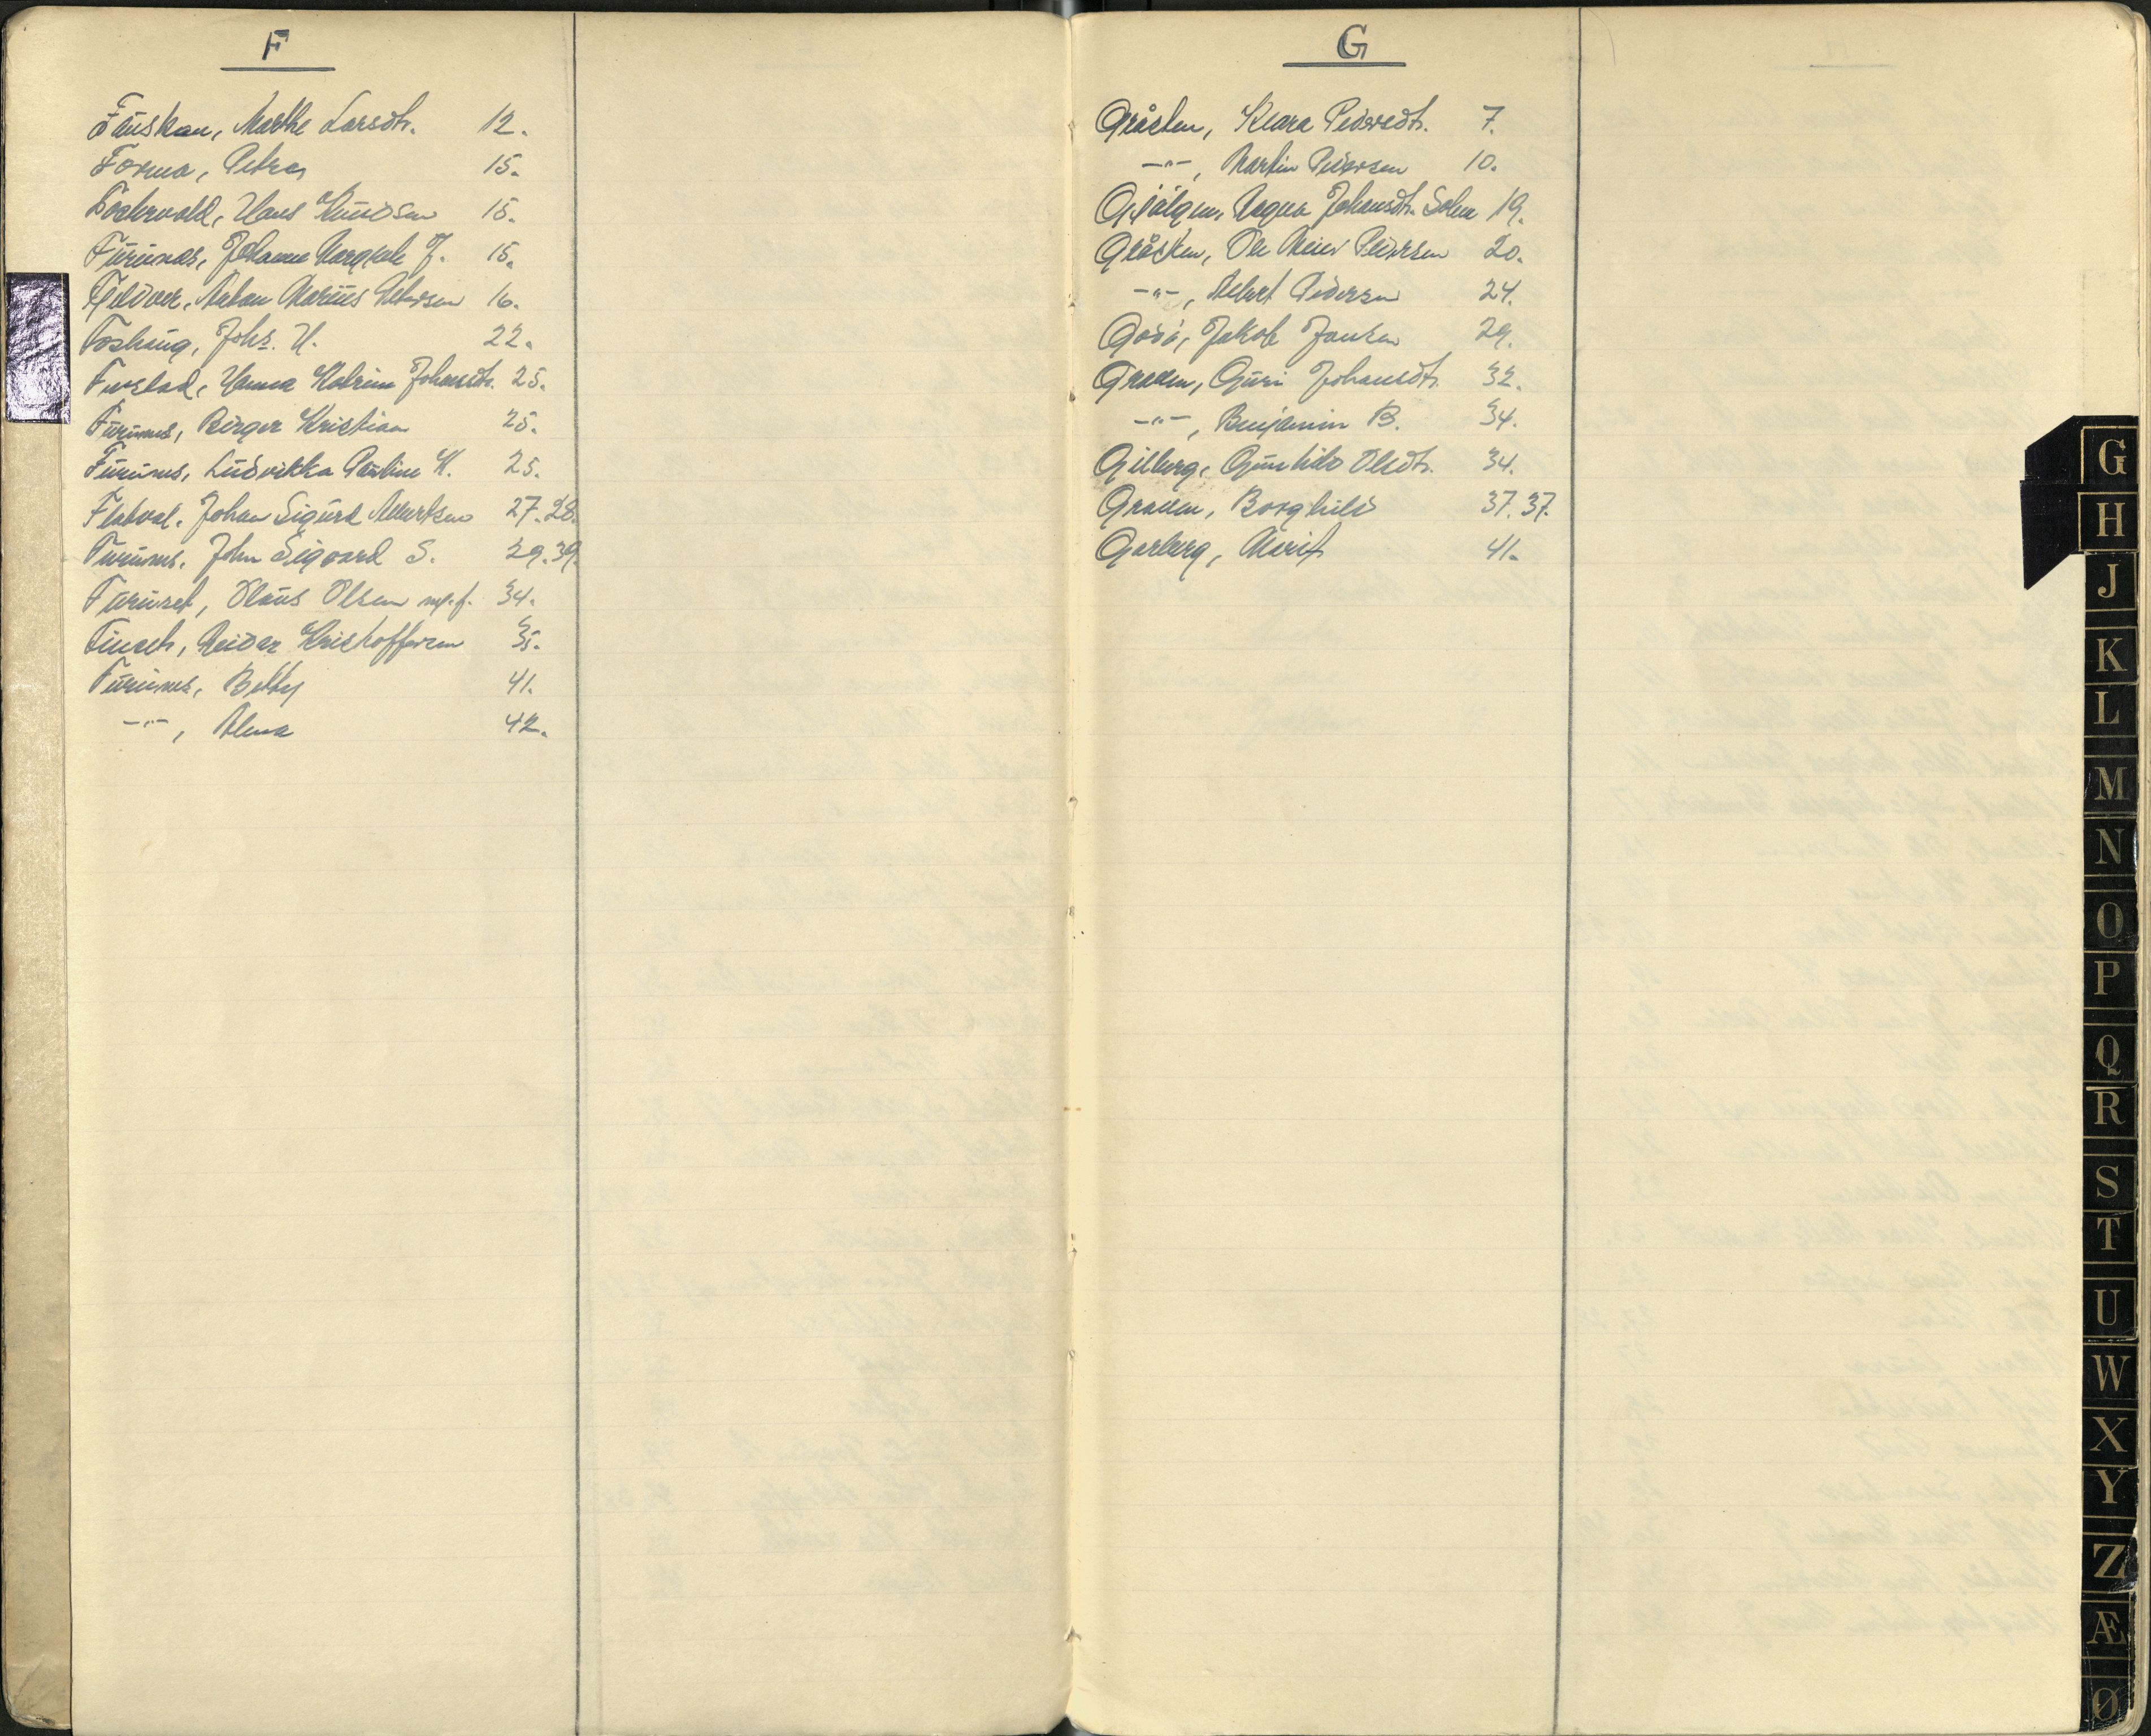 F
Fauskan, Marthe Larsdtr. 12.
Forma, Petra 15.
Hans Knudsen 15.
Furunes, Johanna Margrete J. 15.
Fjelvær, Anton Marius 16.
Foshaug, Johs. H. 22.
Hanna Katrine Johansdtr. 25.
Furunes, Birger Kristian 25.
Furunes, Ludvikka Pauline K. 25.
Flatval, Johan Sigurd Albertsen 27. 28.
Furunes, John Sigvard S. 29. 39.
Furuset, Olaus Olsen 34.
Reidar Kristoffersen 35.
Furunes, Betty 41.
-"-, Alma 42.
G
Gråsten, Klara Pedersdtr. 7.
-"-, Martin Pedersen 10.
Gjølgen, Magna Johansdtr. 19.
Gråsten, Ole Meier Pedersen 20.
-"-, Albert Pedersen 24.
Jakob Jonsen 29.
Graven, Guri Johansdtr. 32.
-"-, Benjamin B. 34.
Gilberg, Gunhild Olsdtr. 34.
Graven, Borghild 37. 37.
Garberg, Marit 41.
G
H
J
K
L
M
N
O
P
Q
R
S
T
U
W
X
Y
Z
Æ
Ø